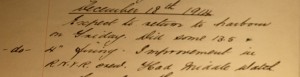 December 18th 1914
Expect to return to harbour
on Friday. Did some 12 &
- do - 4" firing. Improvement in
R.N.R. crew. Had middle watch